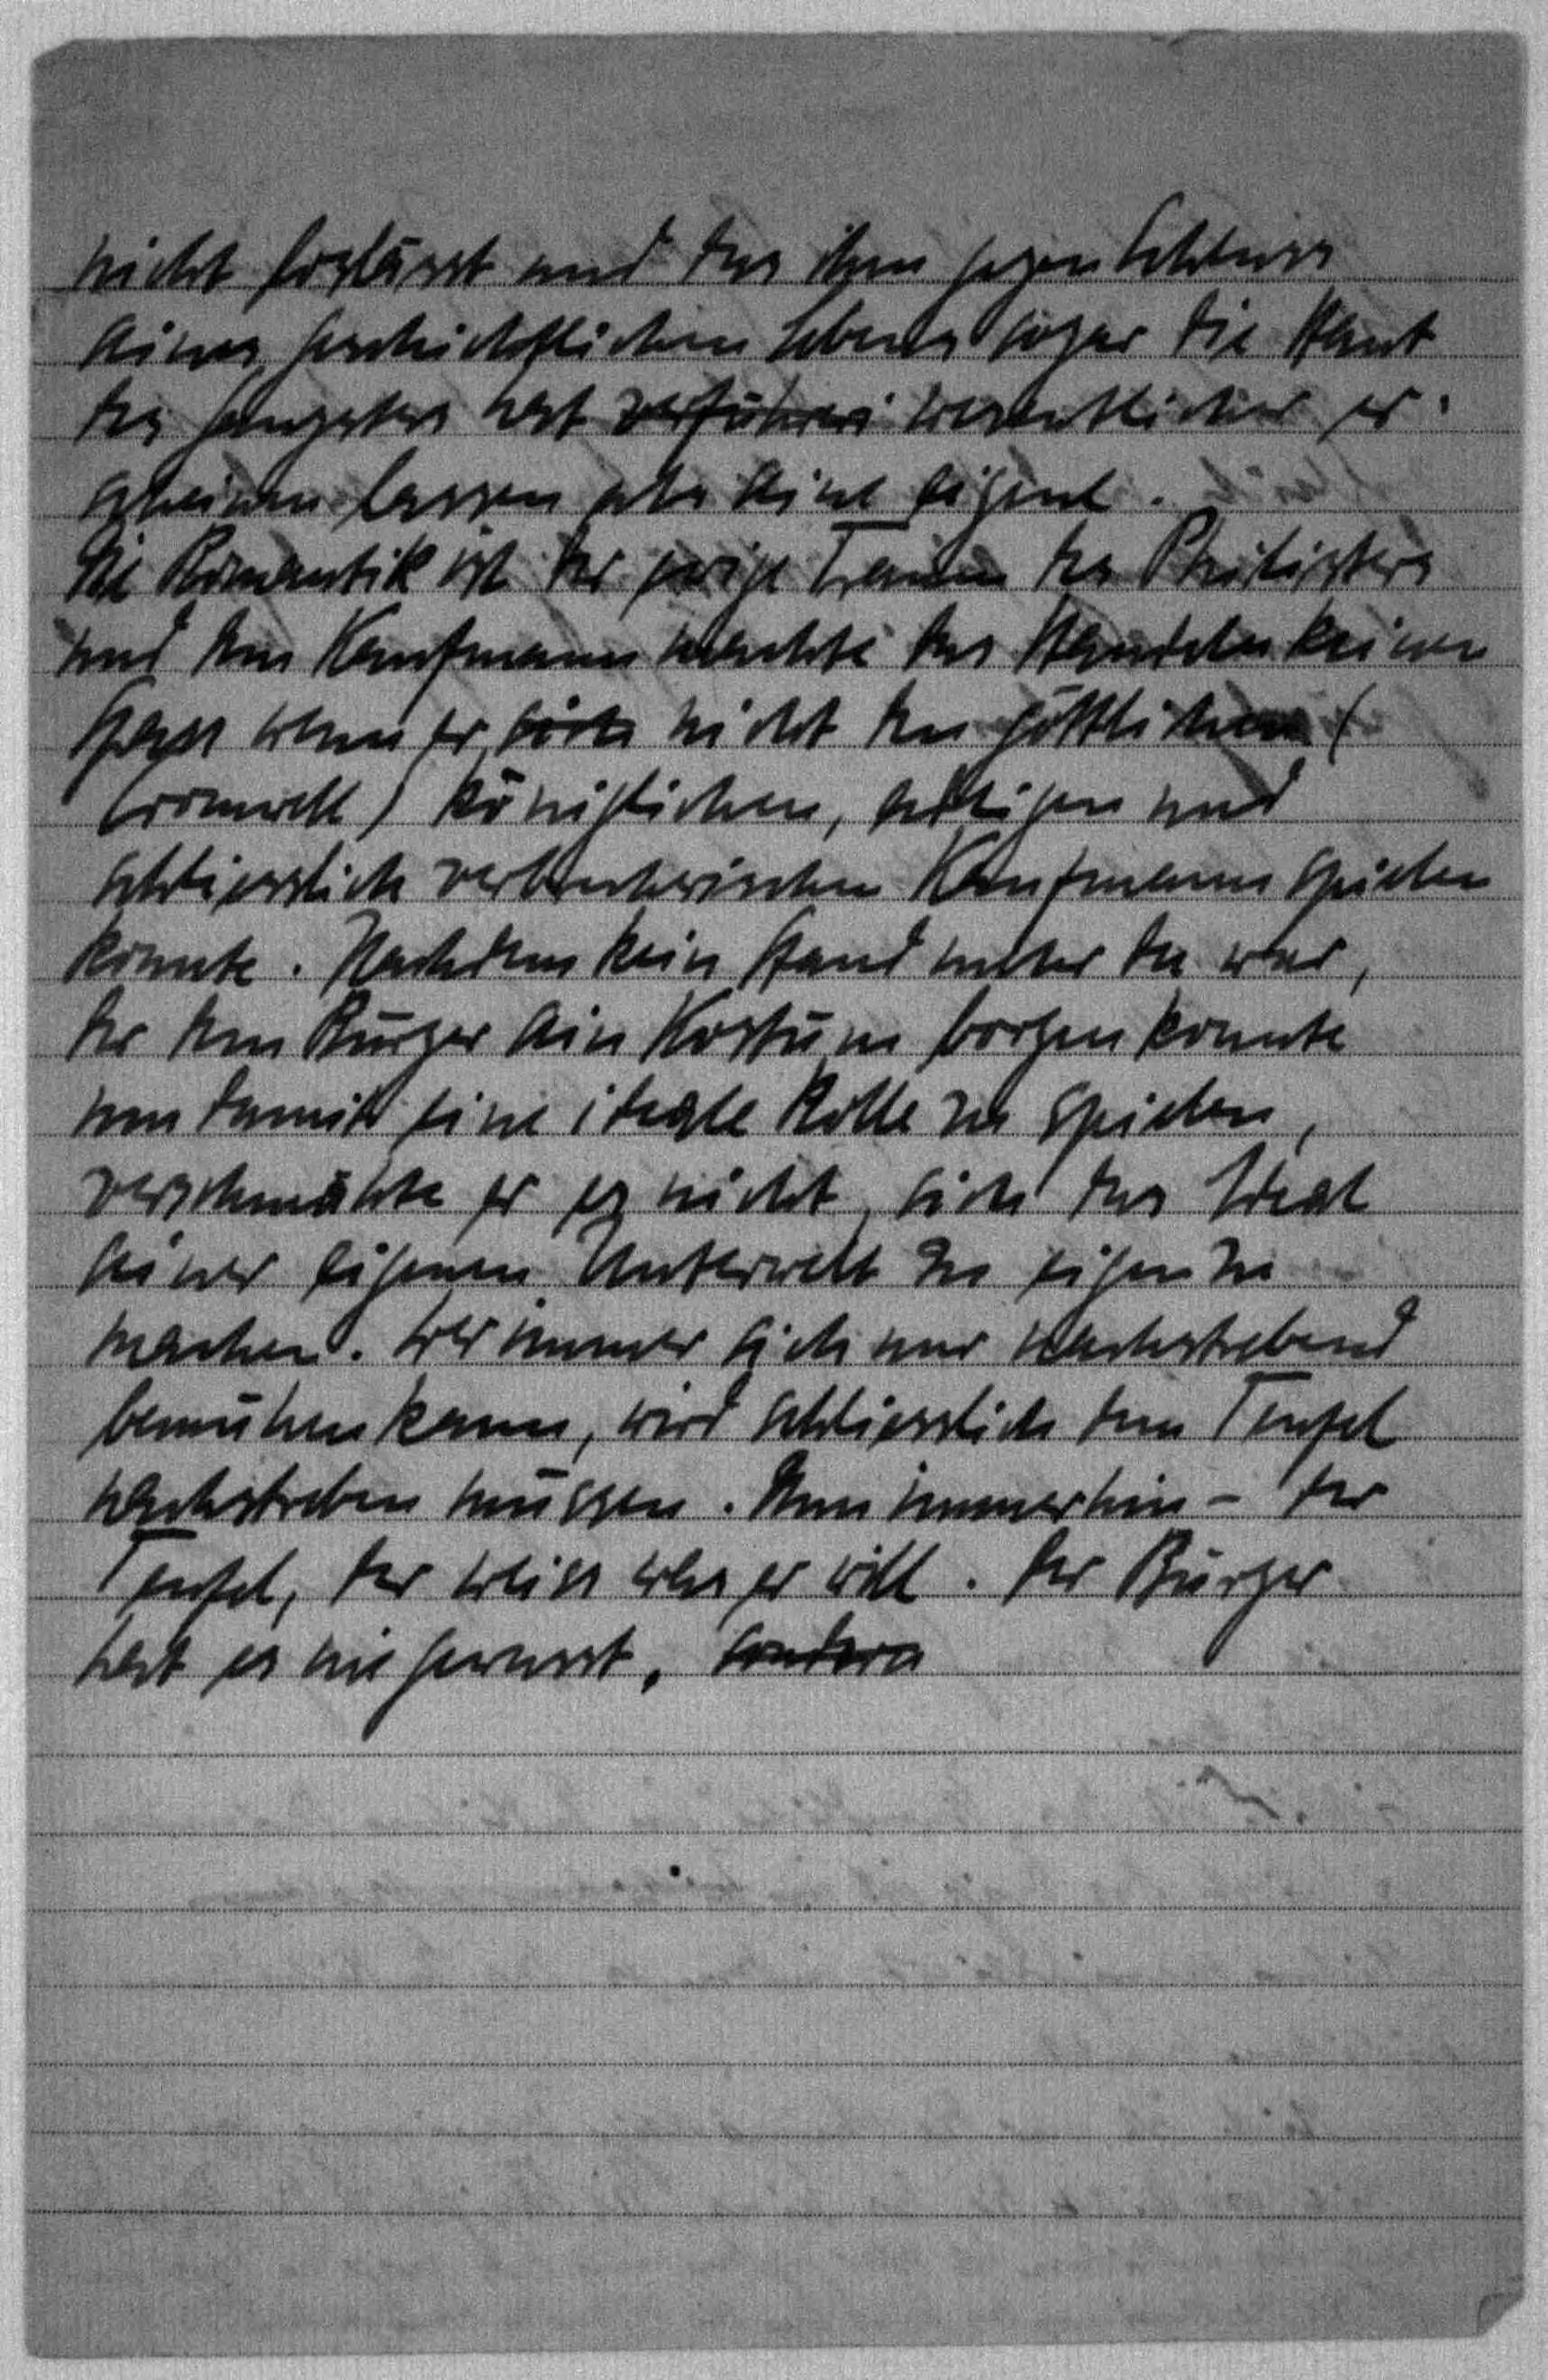 nicht loslässt und das ihm gegen Schluss
seines geschichtlichen Lebens sogar die Haut
des Gangsters hat verführeri wesentlicher er-
scheinen lassen als seine eigene.
Die Romantik ist der ewige Traum des Philisters
und dem Kaufmann machte das Handeln keinen
Spass wenn er sich nicht den göttlichen (
Cromwell) königlichen, adligen und
schliesslich verbrecherischen Kaufmann spielen
konnte. Nachdem kein Stand mehr da war,
der dem Bürger ein Kostüm borgen konnte
um damit eine ideale Rolle zu spielen,
verschmähte er es nicht, sich das Ideal
seiner eigenen Unterwelt zu eigen zu
machen. Wer immer sich nur nachstrebend
bemühen kann, wird schliesslich dem Teufel
nachstreben müssen. Nun immerhin – der
Teufel, der weiss was er will. Der Bürger
hat es nie gewusst, sondern